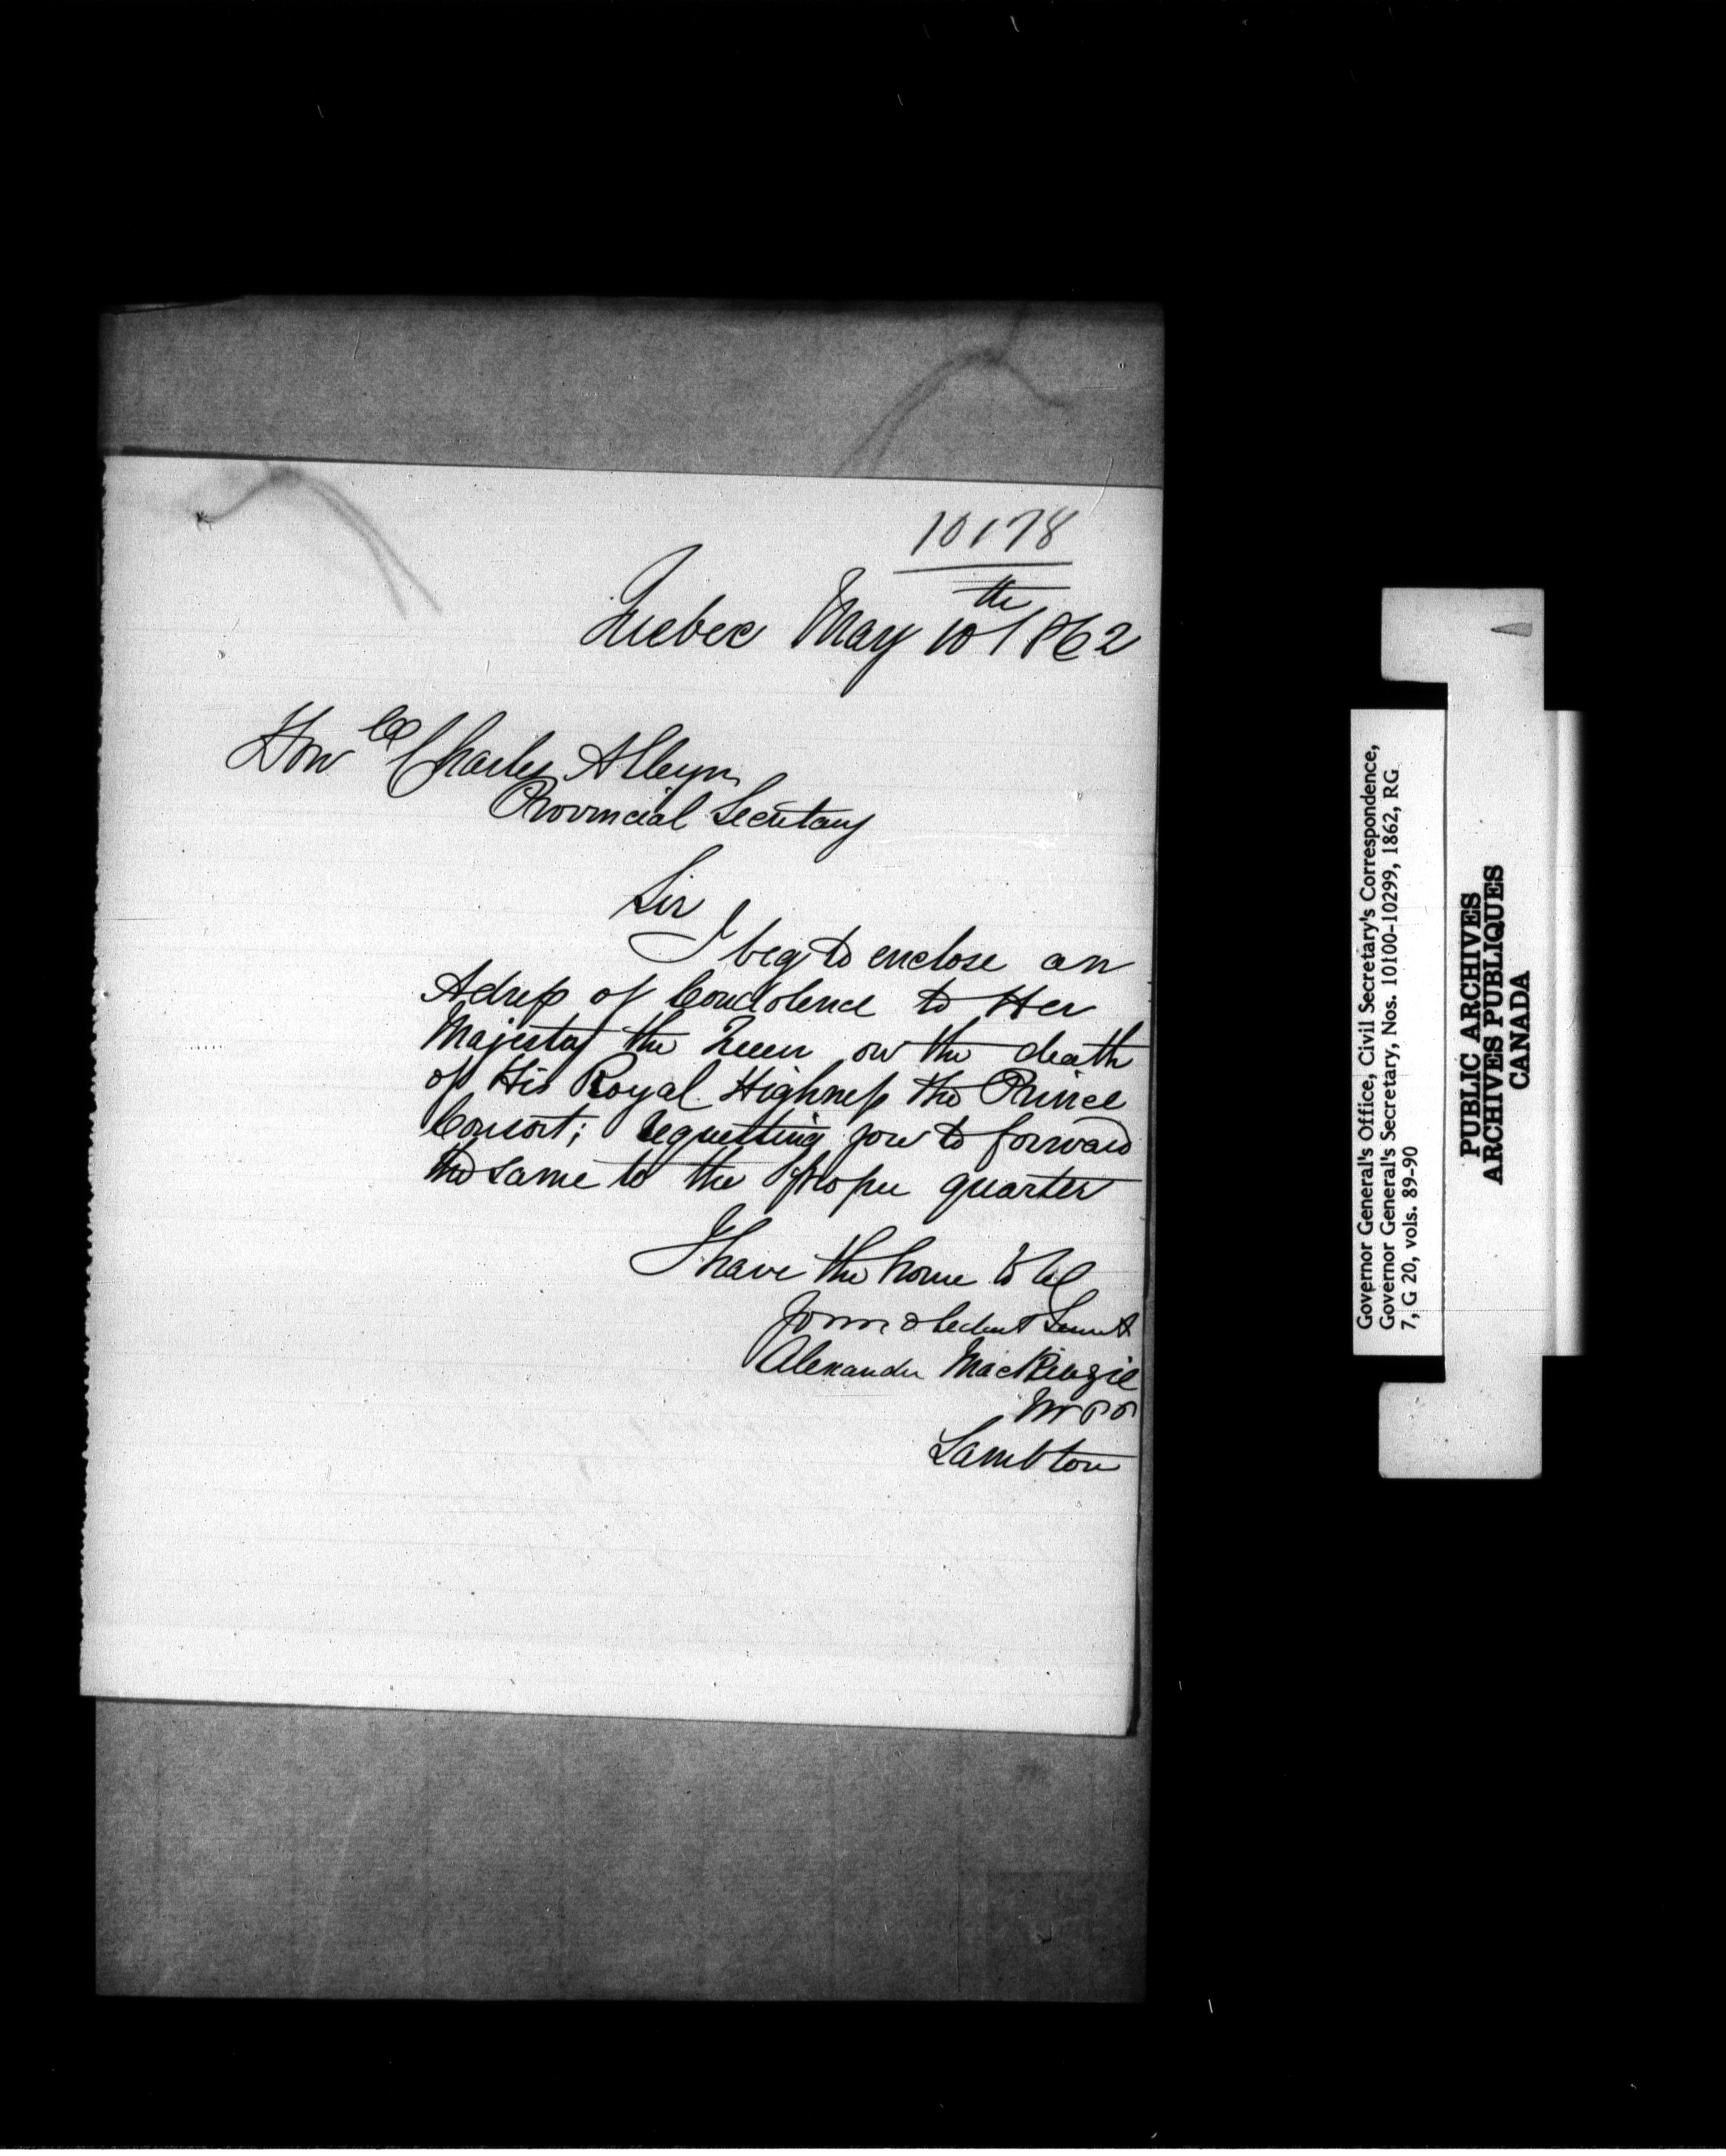 10178
Quebec May 10th 1862
Honble Charles Alleyn
Provincial Secretary
Sir
I beg to enclose an
Adress of Condolence to Her
Majesty the Queen on the death
of His Royal Highness the Prince
Consort; requesting you to forward
the same to the proper quarter
I have the honor to be
Your obedient Servt
Alexander MacKenzie
M P P
Lambton
Governor General's Office, Civil Secretary's Correspondence,
Governor General's Secretary, Nos. 10100-10299, 1862, RG
7, G 20, vols. 89-90
PUBLIC ARCHIVES
ARCHIVES PUBLIQUES
CANADA